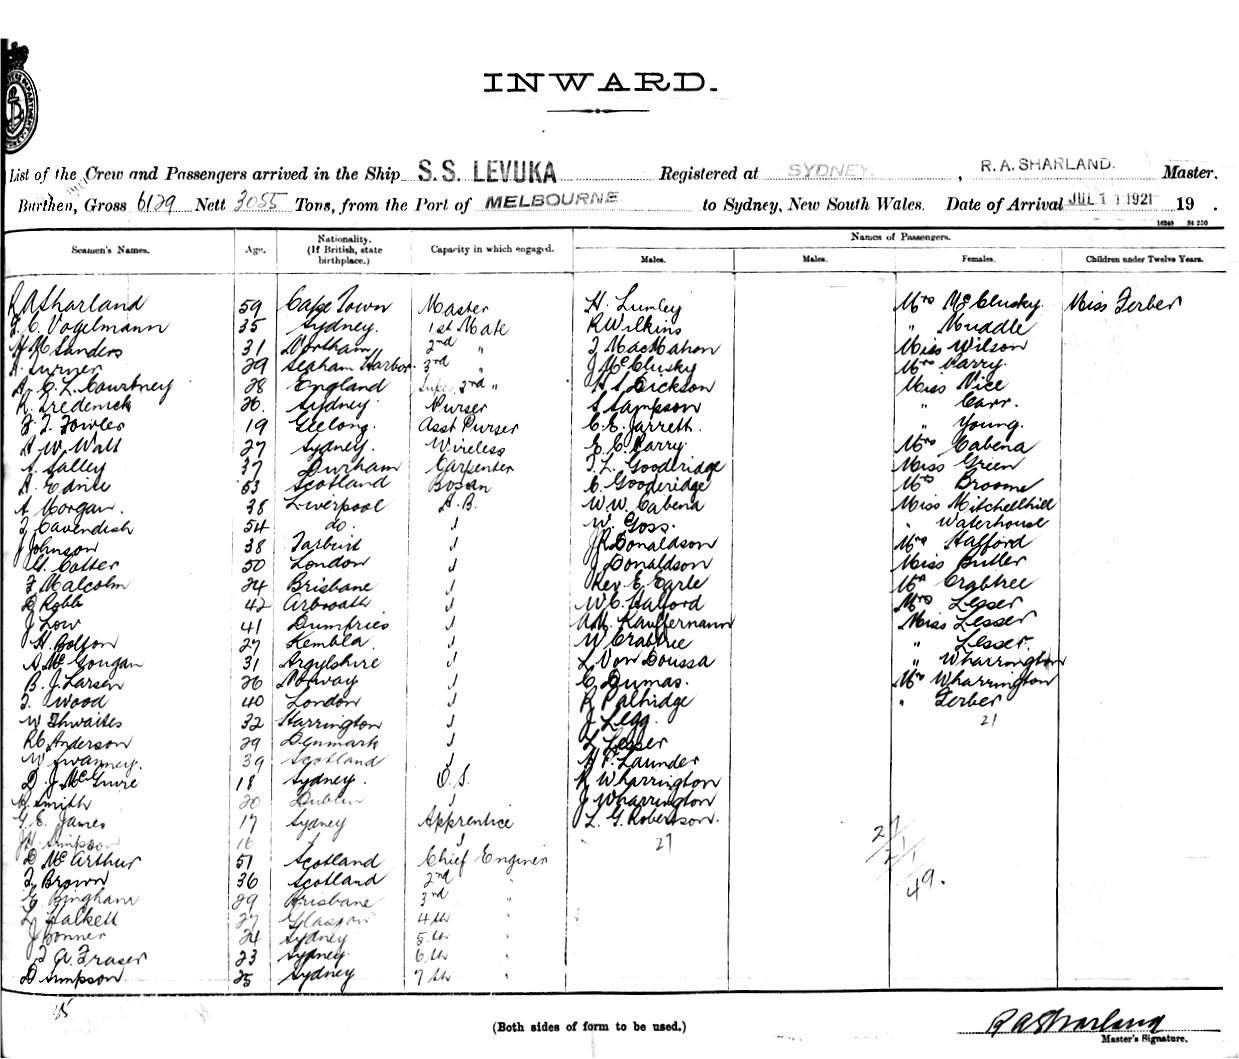 INWARD.
List of the Crew and Passengers arrived in the Ship S. S. LEVUKA Registered at SYDNEY. , R. A. SHARLAND. Master.
Burthen, Gross 6129 Nett 3055 Tons, from the Port of MELBOURNE to Sydney, New South Wales. Date of Arrival JUL 1 1921 19 .
Names of Passengers.
Seamen's Names. Age. Nationality. (If British, state birthplace.) Capacity in which engaged. Males. Males. Females. Children under Twelve Years.
R A Sharland 59 Cape Town Master H. Lumley Mrs McClusky Miss Ferber
F. C. Vogelmann 35 Sydney. 1st Mate R Wilkins " Muddle
H M Sanders 31 2nd " J MacMahon Miss Wilson
A. Turner 29 Seaham Harbor 3rd " J McClusky Mrs Parry.
A. C. L. Courtney 28 England 3rd " A S Dickson Miss Vice
R. Frederick 26. Sydney Purser S Sampson " Carr.
F. J. Fowler 19 Geelong. Asst Purser C. E. Jarrett. " Young.
A. W. Watt 27 Sydney. Wireless E. C. Parry. Mrs Cabena
Salley 37 Durham Carpenter T. L. Gooderidge Miss Green
A. 53 Scotland Bosun C. Gooderidge Mrs Broome
A Morgan. 38 Liverpool A. B. W W Cabena Miss Mitchellhill
J Cavendish 54 do. W. Goss. " Waterhouse
J Johnson 38 J R Donaldson Mrs Halford
G. Cotter 50 London J Donaldson Miss Butler
F Malcolm 24 Brisbane Rev E. Earle Mrs Crabtree
D Robb 42 Arbroath W C. Halford Mrs Lesser
J Low 41 Dumfries Kauffermann Miss Lesser
H. Bolton 27 Kembla. W Crabtree " Lesser.
A. McGougan 31 Argylshire L Von Doussa " Wharrington
B. J. Larsen 26 Norway C Dumas. Mrs Wharrington
J. Wood 40 London R Palfridge " Ferber
W Thwaites 32 Harrington J Legg. 21
R C Anderson 29 Denmark L Lesser
W Swanney. 39 Scotland H P. Launder
D. J. McGuire 18 Sydney. O. S. R Wharrington
H. Smith 20 Dublin J Wharrington
G. E. James 17 Sydney Apprentice L. G. Robertson.
J H Simpson 16 27
D McArthur 51 Scotland Chief Enginer 27
J. Brown 36 Scotland 2nd " 21
G Bingham 29 Brisbane 3rd " 1
L Halkett 27 Glasgow 4th " 49.
J Bonner 24 Sydney 5th "
J. A. Fraser 23 Sydney 6th "
D Simpson 25 Sydney 7th "
(Both sides of form to be used.)
R A Sharland
Master's Signature.